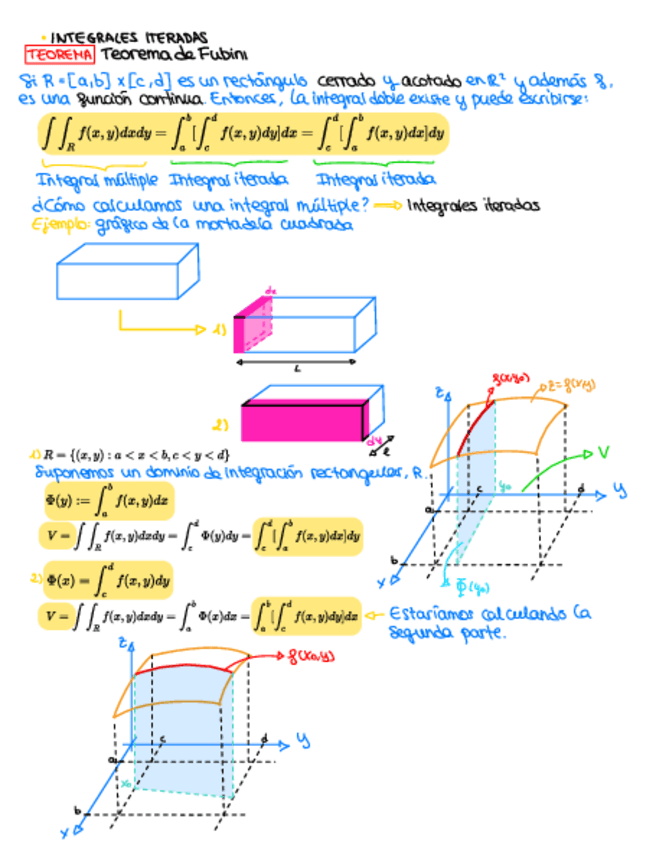 • INTEGRALES ITERADAS
TEOREMA Teorema de Fubini
Si R=[a,b] x [c,d] es un rectángulo cerrado y acotado en ℝ² y además f,
es una función continua. Entonces, la integral doble existe y puede escribirse:
∫∫_R f(x,y)dxdy = ∫_a^b [∫_c^d f(x,y)dy]dx = ∫_c^d [∫_a^b f(x,y)dx]dy
Integral múltiple Integral iterada Integral iterada
¿Cómo calculamos una integral múltiple? ⟹ Integrales iteradas
Ejemplo: gráfico de la mortadela cuadrada
dx
1)
L
2)
dy
l
z
f(x,y₀)
z=f(x,y)
V
y₀
c
d
y
a
b
x
Φ(y₀)
1) R = {(x,y) : a < x < b, c < y < d}
Suponemos un dominio de integración rectangular, R.
Φ(y) := ∫_a^b f(x,y)dx
V = ∫∫_R f(x,y)dxdy = ∫_c^d Φ(y)dy = ∫_c^d [∫_a^b f(x,y)dx]dy
2) Φ(x) = ∫_c^d f(x,y)dy
V = ∫∫_R f(x,y)dxdy = ∫_a^b Φ(x)dx = ∫_a^b [∫_c^d f(x,y)dy]dx ← Estaríamos calculando la
segunda parte.
z
f(x₀,y)
c
d
y
a
x₀
b
x